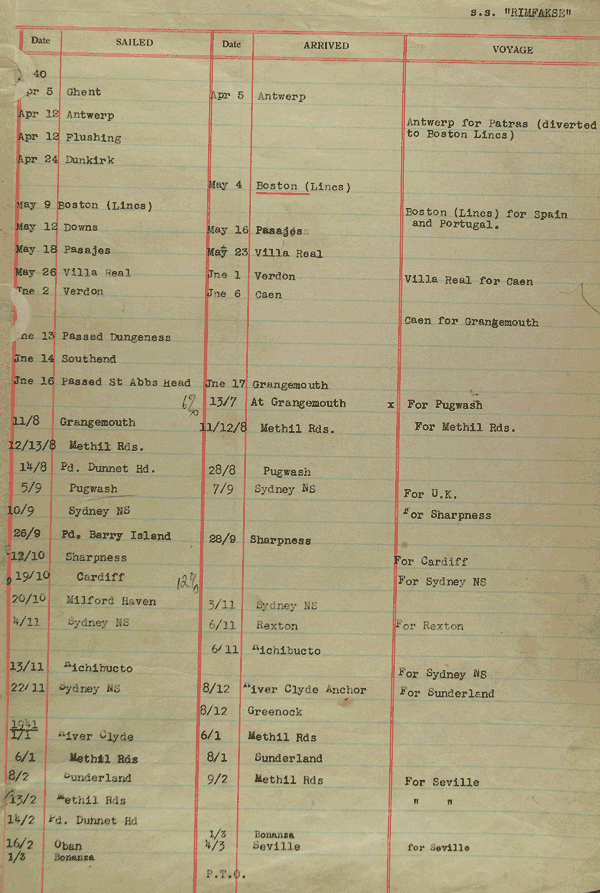 s.s. "RIMFAKSE"
Date SAILED Date ARRIVED VOYAGE
40
Apr 5 Ghent Apr 5 Antwerp
Apr 12 Antwerp Antwerp for Patras (diverted
Apr 12 Flushing to Boston Lincs)
Apr 24 Dunkirk
May 4 Boston (Lincs)
May 9 Boston (Lincs) Boston (Lincs) for Spain
May 12 Downs May 16 Pasajes and Portugal.
May 18 Pasajes May 23 Villa Real
May 26 Villa Real Jne 1 Verdon Villa Real for Caen
Jne 2 Verdon Jne 6 Caen
Caen for Grangemouth
Jne 13 Passed Dungeness
Jne 14 Southend
Jne 16 Passed St Abbs Head Jne 17 Grangemouth
13/7 At Grangemouth x For Pugwash
11/8 Grangemouth 11/12/8 Methil Rds. For Methil Rds.
12/13/8 Methil Rds.
14/8 Pd. Dunnet Hd. 28/8 Pugwash
5/9 Pugwash 7/9 Sydney NS For U.K.
10/9 Sydney NS For Sharpness
26/9 Pd. Barry Island 28/9 Sharpness
12/10 Sharpness For Cardiff
19/10 Cardiff For Sydney NS
20/10 Milford Haven 3/11 Sydney NS
4/11 Sydney NS 6/11 Rexton For Rexton
6/11 Richibucto
13/11 Richibucto For Sydney NS
22/11 Sydney NS 8/12 River Clyde Anchor For Sunderland
8/12 Greenock
1941
1/1 River Clyde 6/1 Methil Rds
6/1 Methil Rds 8/1 Sunderland
8/2 Sunderland 9/2 Methil Rds For Seville
13/2 Methil Rds " "
14/2 Pd. Dunnet Hd
1/3 Bonanza
16/2 Oban 4/3 Seville for Seville
1/3 Bonanza
P.T.O.